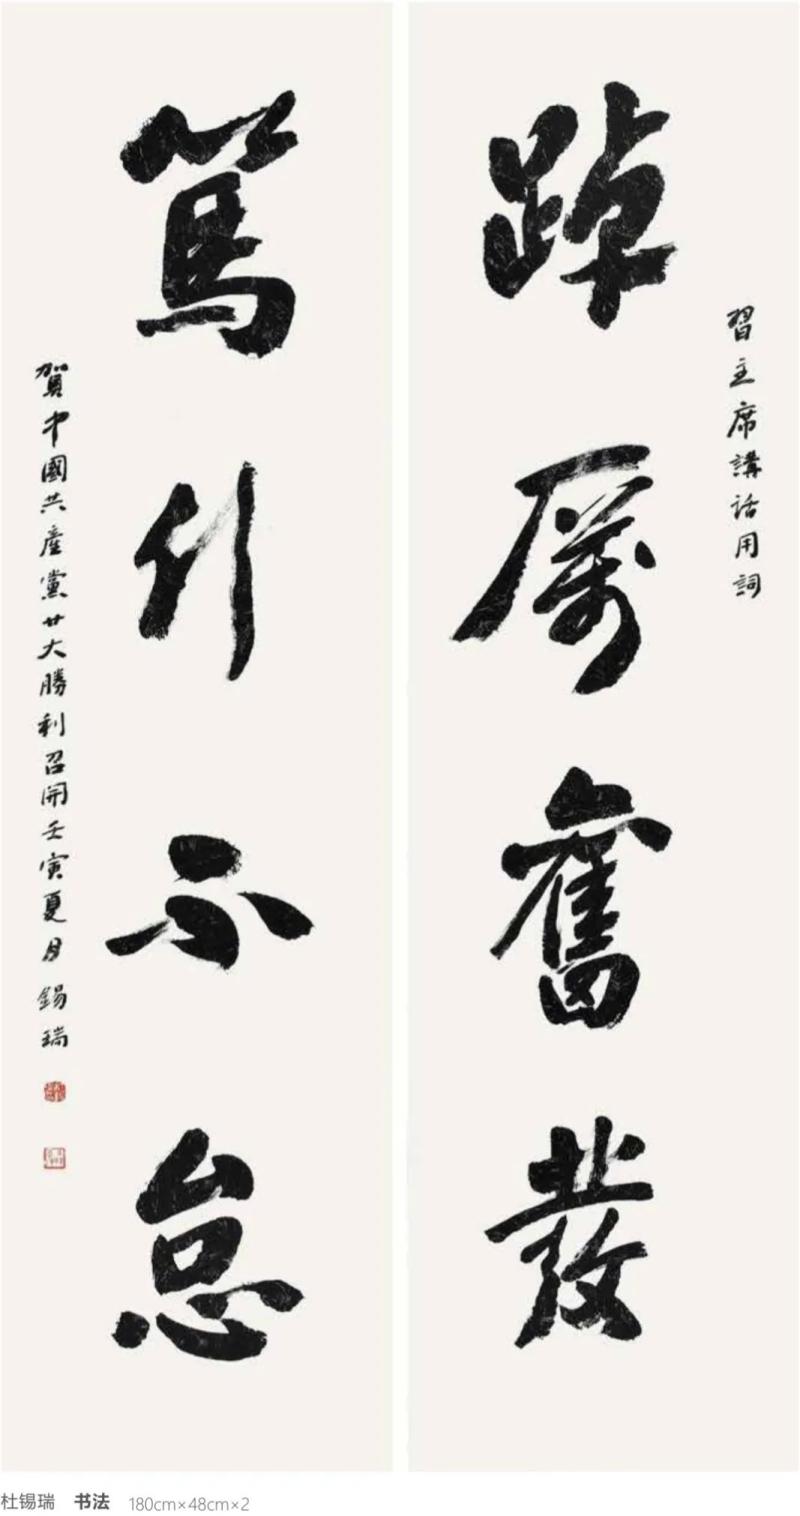 習主席講話用詞
踔厲奮發
篤行不怠
賀中國共產黨廿大勝利召開壬寅夏月錫瑞
杜锡瑞 书法 180cm×48cm×2